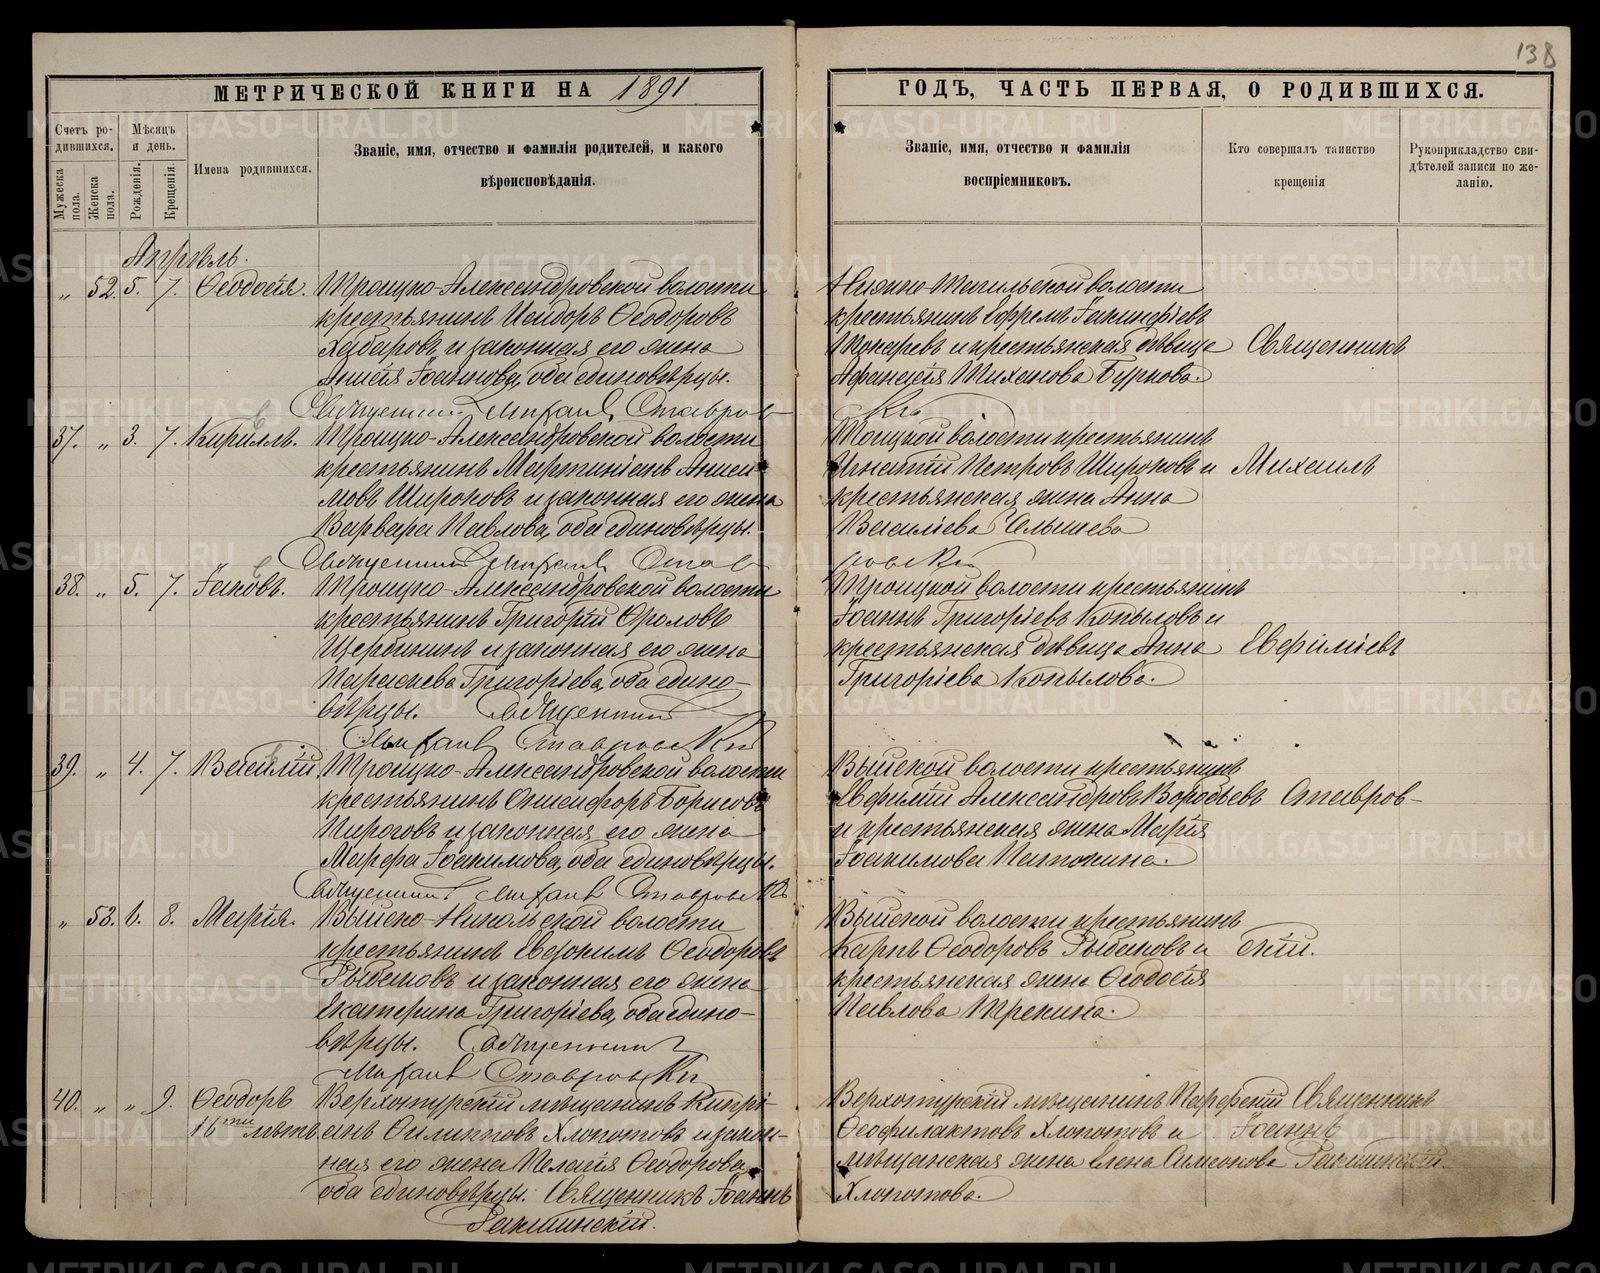 138
МЕТРИЧЕСКОЙ КНИГИ НА 1891
ГОДЪ, ЧАСТЬ ПЕРВАЯ, О РОДИВШИХСЯ.
Счетъ ро-
дившихся.
Мѣсяцъ
и день.
Мужеска
пола.
Женска
пола.
Рожденія.
Крещенія.
Имена родившихся.
Званіе, имя, отчество и фамилія родителей, и какого
вѣроисповѣданія.
Званіе, имя, отчество и фамилія
воспріемниковъ.
Кто совершалъ таинство
крещенія
Рукоприкладство сви-
дѣтелей записи по же-
ланію.
Апрѣль.
„ 52. 5. 7. Ѳеодосія. Троицко-Александровской волости
крестьянинъ Исидоръ Ѳеодоровъ
Хабаровъ и законная его жена
Анисія Іоаннова, оба единовѣрцы.
Священникъ Михаилъ Ставров
Нижне-Тагильской волости
крестьянинъ Ефремъ Іакинѳіевъ
Токаревъ и крестьянская дѣвица
Афанасія Тиханова Бурнова.
Священникъ
37. „ 3. 7. Кириллъ. Троицко-Александровской волости
крестьянинъ Мартиніанъ Аниси-
мовъ Широковъ и законная его жена
Варвара Павлова, оба единовѣрцы.
Священникъ Михаилъ Став
Троицкой волости крестьянинъ
Игнатій Петровъ Широковъ и
крестьянская жена Анна
Василіева
ровскій
Михаилъ
38. „ 5. 7. Іаковъ. Троицко-Александровской волости
крестьянинъ Григорій Фроловъ
Щербининъ и законная его жена
Параскева Григоріева, оба едино-
вѣрцы. Священникъ
Михаилъ Ставровскій
Троицкой волости крестьянинъ
Іоаннъ Григоріевъ Копыловъ и
крестьянская дѣвица Анна
Григоріева Копылова.
Евфиміевъ
39. „ 4. 7. Василій. Троицко-Александровской волости
крестьянинъ Онисифоръ Борисовъ
Пироговъ и законная его жена
Марфа Іоакимова, оба единовѣрцы.
Священникъ Михаилъ Ставровскій
Выйской волости крестьянинъ
Евфимій Александровъ Воробьевъ
и крестьянская жена Марія
Іоакимова Патокина.
Ставров-
„ 53. 6. 8. Марія. Выйско-Никольской волости
крестьянинъ Евдокимъ Ѳеодоровъ
Рыбаковъ и законная его жена
Екатерина Григоріева, оба едино-
вѣрцы. Священникъ
Михаилъ Ставровскій
Выйской волости крестьянинъ
Карпъ Ѳеодоровъ Рыбаковъ и
крестьянская жена Ѳеодосія
Павлова Трекина.
скій.
40. „ „ 9. Ѳеодоръ Верхотурскій мѣщанинъ Кипрі-
16ти лѣтъ анъ Филиктовъ Хлопотовъ и закон-
ная его жена Пелагія Ѳеодорова,
оба единовѣрцы. Священникъ Іоаннъ
Верхотурскій мѣщанинъ
Ѳеофилактовъ Хлопотовъ и
мѣщанская жена Елена Симеонова
Хлопотова.
Священникъ
Іоаннъ
METRIKI.GASO-URAL.RU